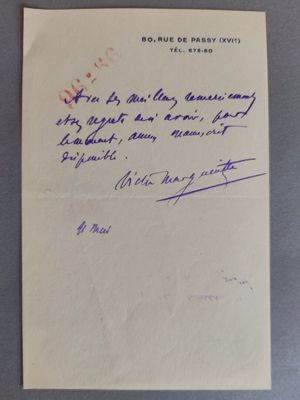 80, RUE DE PASSY (XVIe)
TÉL. 675-80
Avec ses meilleurs remerciements
et ses regrets de n'avoir, pour
le moment, aucun manuscrit
disponible.
Victor Margueritte